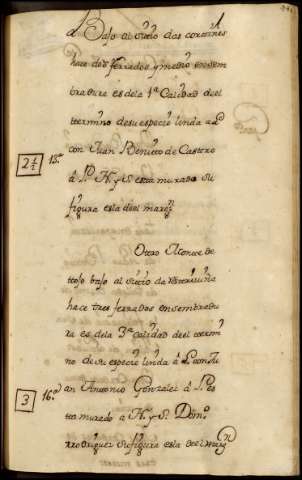 d Bajo al sitio das cortiñas
hace dos ferrados y medio en sem
bradura es de la 1ª Calidad de el
termino de su especie linda a L.
con Juan Benito de Castro
2½ 13.
a P. N. y S. esta murado Su
figura es la de el marg.n
Otero Alcance de
tojo bajo al sitio de
hace tres ferrados en sembradu
ra es de la 3ª calidad de el termi
no de su especie linda a L. con Ju
an Antonio Gonzalez a P. es
3 16.
ta murado a N. y S. Dom.o
Rodriguez Su figura es la de el marg.n